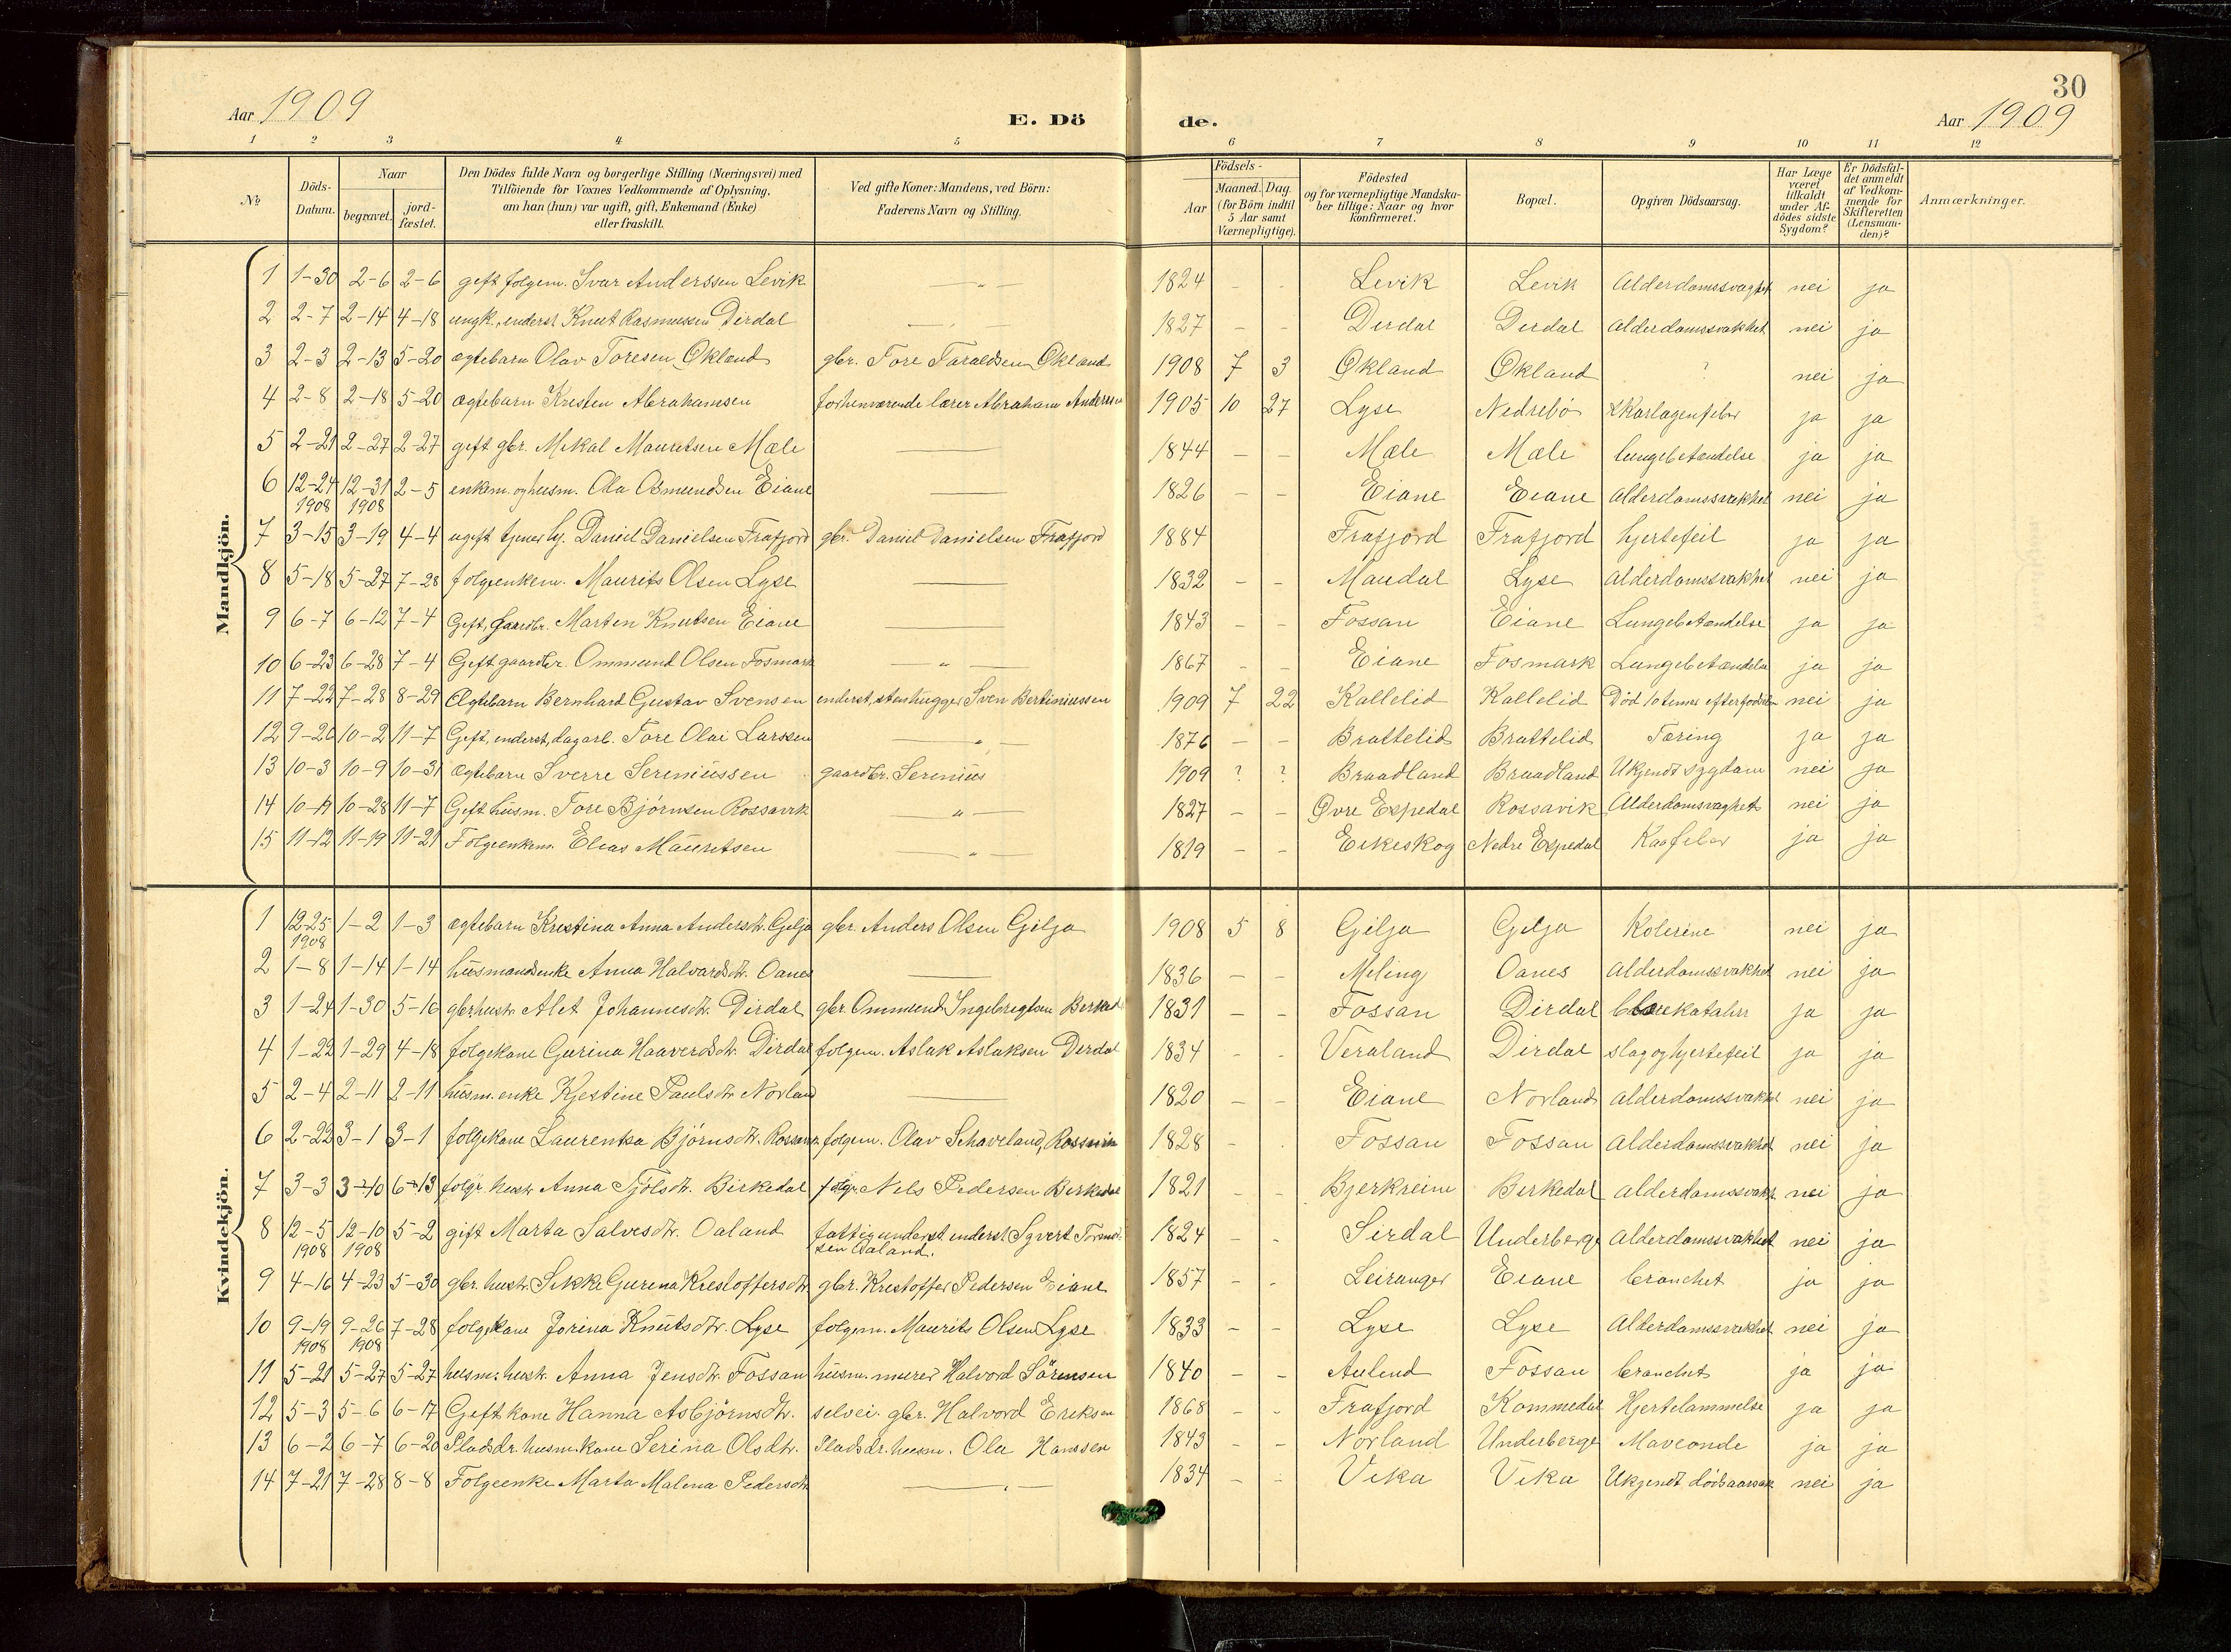 30
Aar 1909 E. Dö de. Aar 1909
1 2 3 4 5 6 7 8 9 10 11 12
№ Döds-Datum. Naar begravet. jord-fæstet. Den Dödes fulde Navn og borgerlige Stilling (Næringsvei) med Tilföiende for Voxnes Vedkommende af Oplysning, om han (hun) var ugift, gift, Enkemand (Enke) eller fraskilt. Ved gifte Koner: Mandens, ved Börn: Faderens Navn og Stilling. Födsels- Aar Maaned. Dag. (for Börn indtil 5 Aar samt Værnepligtige). Födested og for værnepligtige Mandskaber tillige: Naar og hvor konfirmeret. Bopæl. Opgiven Dödsaarsag. Har Læge været tilkaldt under Afdödes sidste Sygdom? Er Dödsfaldet anmeldt af Vedkommende for Skifteretten (Lensmanden)? Anmærkninger.
Mandkjön.
1 1-30 2-6 2-6 gift folgem. Ivar Anderssen Levik — " — 1824 - - Levik Levik Alderdomssvaghet nei ja
2 2-7 2-14 4-18 ungk. inderst Knut Rasmussen Dirdal — 1827 - - Dirdal Dirdal Alderdomssvakhet nei ja
3 2-3 2-13 5-20 ægtebarn Olav Toresen Økland gbr. Tore Taraldsen Økland 1908 7 3 Økland Økland ? nei ja
4 2-8 2-18 5-20 ægtebarn Kristen Abrahamsen forhenværende lærer Abraham Andersen 1905 10 27 Lyse Nedrebö Skarlagenfeber ja ja
5 2-21 2-27 2-27 gift gbr. Mikal Mauritsen Mæle — 1844 - - Mæle Mæle lungebetændelse ja ja
6 12-24 1908 12-31 1908 2-5 enkem. og husm. Ola Osmundsen Eiane — 1826 - - Eiane Eiane Alderdomssvakhet nei ja
7 3-15 3-19 4-4 ugift tjener Daniel Danielsen Frafjord gbr. Daniel Danielsen Frafjord 1884 Frafjord Frafjord hjertefeil ja ja
8 5-18 5-27 7-28 folgeenkem. Maurits Olsen Lyse — 1832 - - Maudal Lyse Alderdomssvakhet nei ja
9 6-7 6-12 7-4 Gift, gaardbr. Marten Knutsen Eiane — 1843 - - Fossan Eiane Lungebetændelse ja ja
10 6-23 6-28 7-4 Gift gaardbr. Ommund Olsen Fosmark — " — 1867 - - Eiane Fosmark Lungebetændelse ja ja
11 7-22 7-28 8-29 Ægtebarn Bernhard Gustav Svensen inderst, stenhugger Sven Bertiniussen 1909 7 22 Kallelid Kallelid Död 10 timer efter fødslen nei ja
12 9-26 10-2 11-7 Gift, inderst, dagarb. Tore Olai Larssen — " — 1876 - - Brattelid Brattelid Tæring ja ja
13 10-3 10-9 10-31 ægtebarn Sverre Sereniussen gaardbr. Serenius 1909 ? ? Braadland Braadland Ukjendt sygdom nei ja
14 10-17 10-28 11-7 Gift husm. Tore Björnsen Rossavik — " — 1827 - - Øvre Espedal Rossavik Alderdomsvaghet nei ja
15 11-12 11-19 11-21 Folgeenkem. Elias Mauritsen — " — 1819 - - Eikeskog Nedre Espedal ja ja
Kvindekjön.
1 12-25 1908 1-2 1-3 ægtebarn Kristina Anna Andersdtr. Gilja gbr. Anders Olsen Gilja 1908 5 8 Gilja Gilja Kolerine nei ja
2 1-8 1-14 1-14 husmandsenke Anna Halvardsdtr. Oanes — 1836 - - Meling Oanes Alderdomssvakhet nei ja
3 1-24 1-30 5-16 gbrhustr. Alet Johannesdtr. Dirdal gbr. Ommund Ingebregtsen 1831 - - Fossan Dirdal ja ja
4 1-22 1-29 4-18 folgekone Gurina Haaverdsdtr. Dirdal folgem. Aslak Aslaksen Dirdal 1834 - - Veraland Dirdal slag og hjertefeil ja ja
5 2-4 2-11 2-11 husm. enke Kjestine Paulsdtr Norland — 1820 - - Eiane Norland Alderdomssvakhet nei ja
6 2-22 3-1 3-1 folgekone Laurentsa Björnsdtr. Rossavik folgem. Olav Schaveland, Rossavik 1828 - - Fossan Fossan Alderdomssvakhet nei ja
7 3-3 3-10 6-13 folgr. hustr Anna Tjölsdtr. Birkedal folgr. Nils Pedersen Birkedal 1821 - - Bjerkreim Birkedal Alderdomssvakh. nei ja
8 12-5 1908 12-10 1908 5-2 gift Marta Salvesdtr. Oaland fattigunderst inderst Syvert Tormodsen Oaland. 1824 - - Sirdal Underberge Alderdomssvakhet nei ja
9 4-16 4-23 5-30 gbr. hustr. Sikke Gurina Kristoffersdtr. gbr. Kristoffer Pedersen Eiane 1857 - - Leiranger Eiane bronchit ja ja
10 9-19 1908 9-26 1908 7-28 folgekone Jorina Knutsdtr. Lyse folgem. Maurits Olsen Lyse 1833 - - Lyse Lyse Alderdomssvakhet nei ja
11 5-21 5-27 5-27 husm. hustr. Anna Jensdtr. Fossan husm. murer Halvord Sörensen 1840 - - Aulend Fossan bronchit ja ja
12 5-3 5-6 6-17 Gift kone Hanna Asbjörnsdtr. selvei. gbr. Halvord Eriksen 1868 - - Frafjord Kommedal Hjertelammelse ja ja
13 6-2 6-7 6-20 Pladsdr. husm. kone Serina Olsdtr. Pladsdr. husm. Ola Hanssen 1843 - - Norland Underberge Maveonde ja ja
14 7-21 7-28 8-8 Folgeenke Marta Malena Pedersdtr — 1834 - - Vika Vika Ukjendt dödsaarsak nei ja